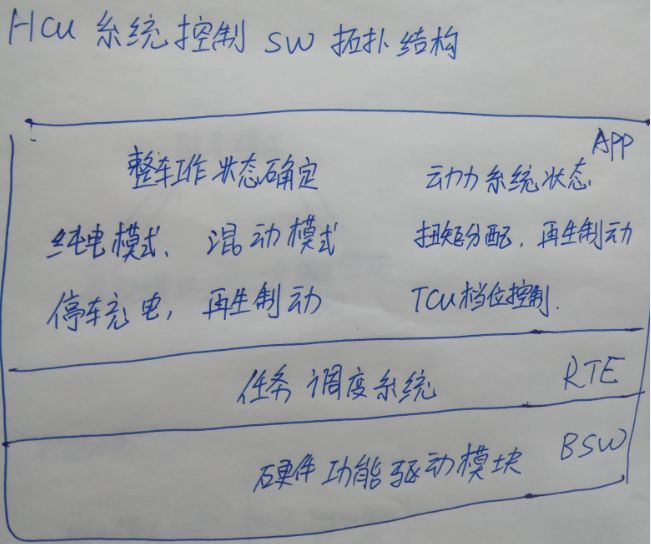 HCU 系统控制 SW 拓扑结构
APP
整车工作状态确定 动力系统状态
纯电模式、混动模式 扭矩分配,再生制动
停车充电,再生制动 TCU档位控制.
任务调度系统 RTE
硬件功能驱动模块 BSW